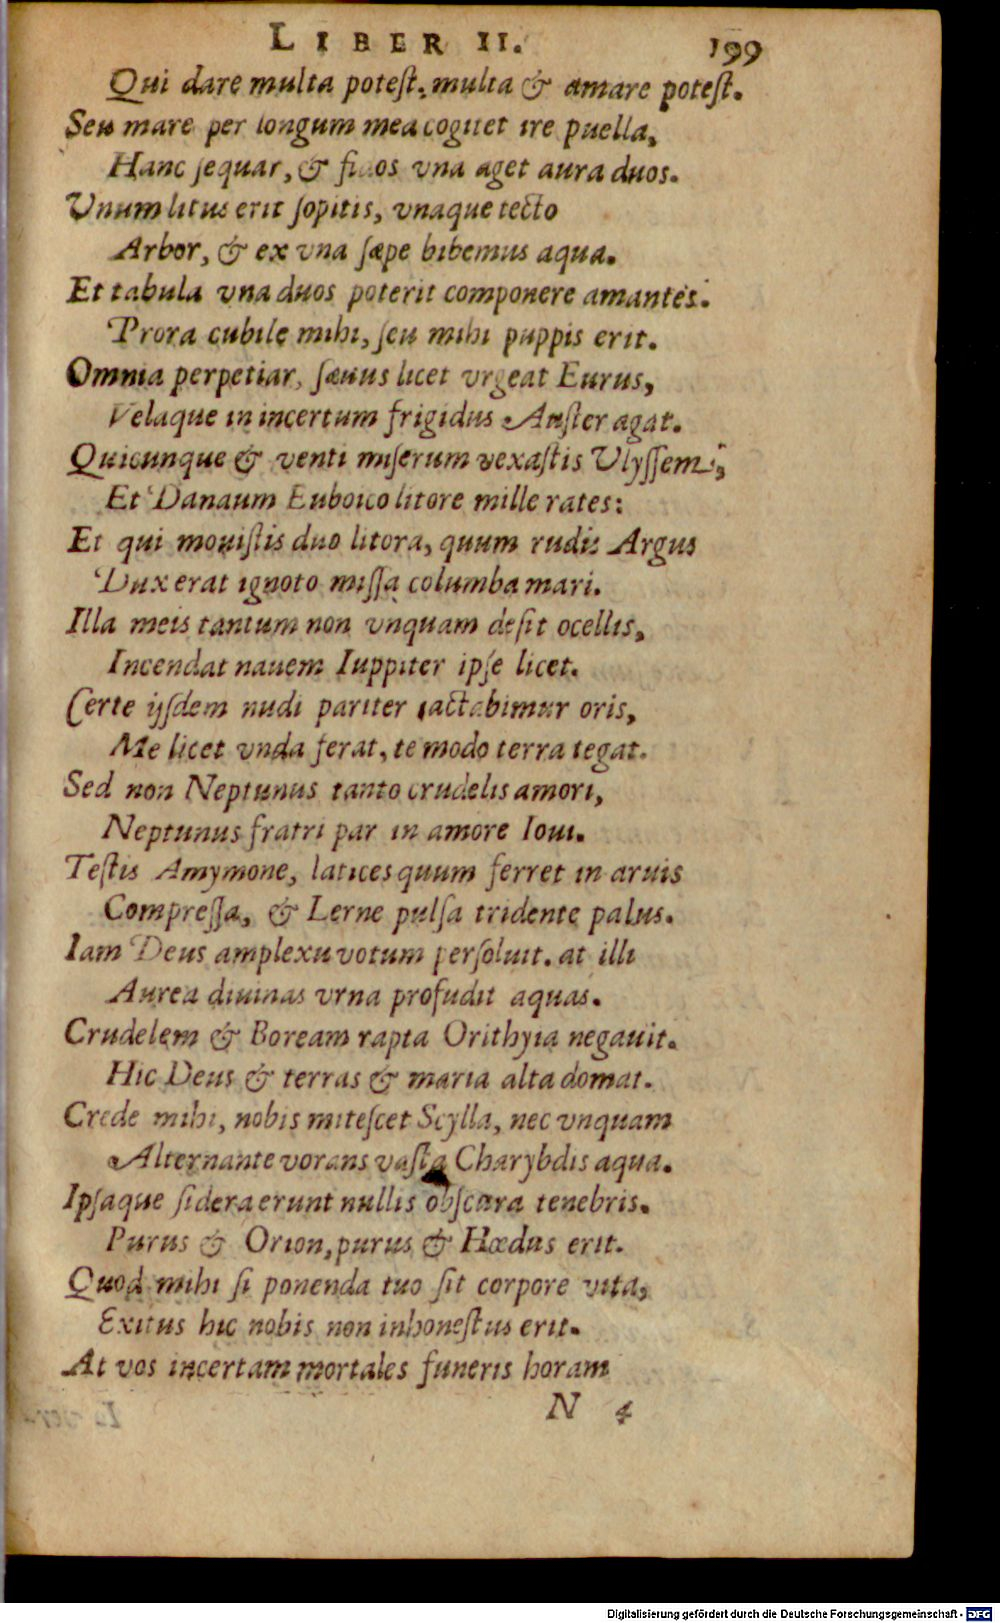 LIBER II. 199
Qui dare multa potest, multa & amare potest.
Seu mare per longum mea cogitet ire puella,
Hanc sequar, & fidos vna aget aura duos.
Vnum litus erit sopitis, vnaque tecto
Arbor, & ex vna sæpe bibemus aqua.
Et tabula vna duos poterit componere amantes.
Prora cubile mihi, seu mihi puppis erit.
Omnia perpetiar, sæuus licet vrgeat Eurus,
Velaque in incertum frigidus Auster agat.
Quicunque & venti miserum vexastis Vlyssem,
Et Danaum Euboico litore mille rates:
Et qui mouistis duo litora, quum rudis Argus
Dux erat ignoto missa columba mari.
Illa meis tantum non vnquam desit ocellis,
Incendat nauem Iuppiter ipse licet.
Certe ijsdem nudi pariter iactabimur oris,
Me licet vnda ferat, te modo terra tegat.
Sed non Neptunus tanto crudelis amori,
Neptunus fratri par in amore Ioui.
Testis Amymone, latices quum ferret in aruis
Compressa, & Lerne pulsa tridente palus.
Iam Deus amplexu votum persoluit. at illi
Aurea diuinas vrna profudit aquas.
Crudelem & Boream rapta Orithyia negauit.
Hic Deus & terras & maria alta domat.
Crede mihi, nobis mitescet Scylla, nec vnquam
Alternante vorans vasta Charybdis aqua.
Ipsaque sidera erunt nullis obscura tenebris.
Purus & Orion, purus & Hœdus erit.
Quod mihi si ponenda tuo sit corpore vita,
Exitus hic nobis non inhonestus erit.
At vos incertam mortales funeris horam
N 4
Digitalisierung gefördert durch die Deutsche Forschungsgemeinschaft - DFG